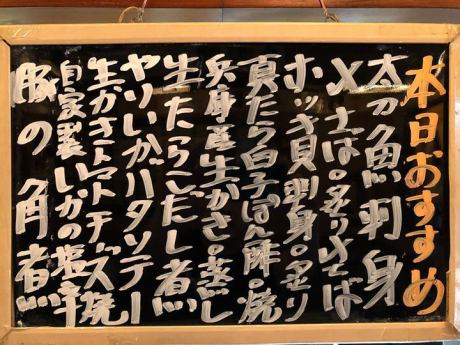 本日おすすめ
太刀魚刺身
〆さば。炙り〆さば
ホッキ貝刺身。炙り
真たら白子ぽん酢。焼
兵庫産生がき。蒸し
生たらこだし煮
やりいかバタソテー
生かきトマトチーズ焼
自家製いかの塩辛
豚の角煮